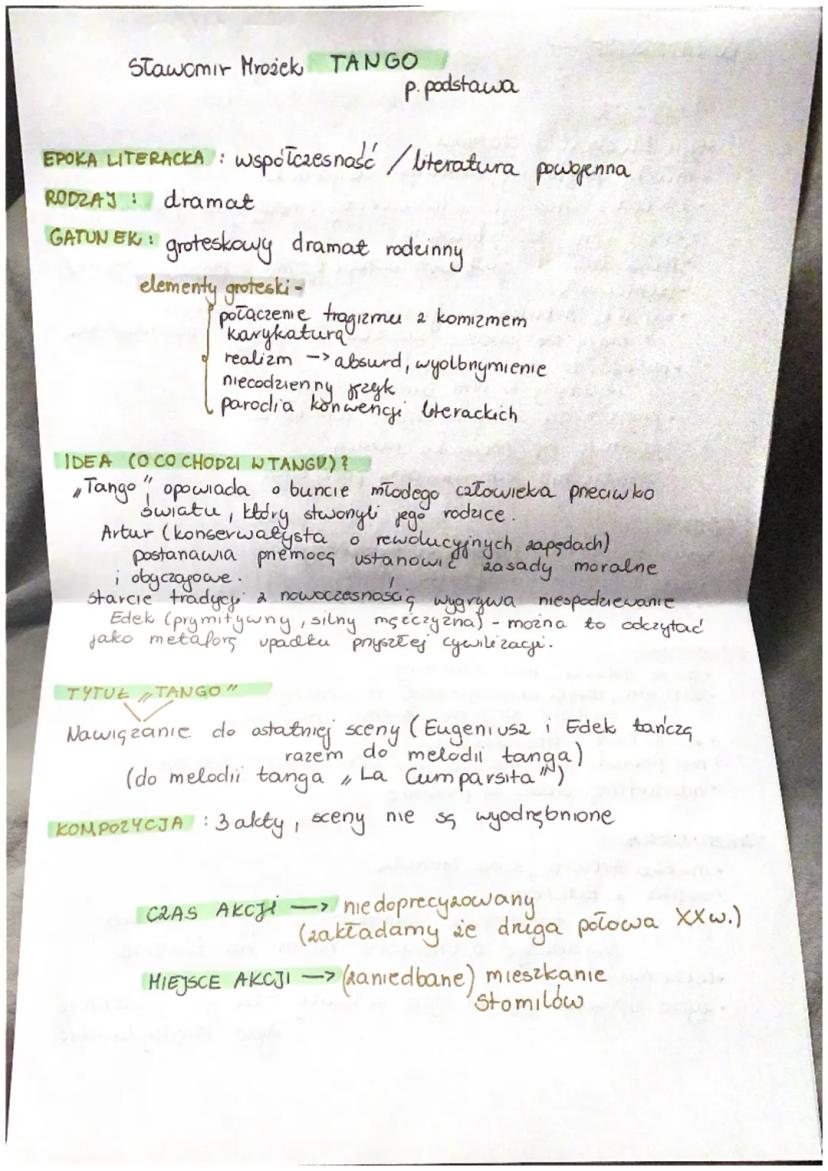 Sławomir Mrożek TANGO
p. podstawa
EPOKA LITERACKA : współczesność / literatura powojenna
RODZAJ : dramat
GATUNEK : groteskowy dramat rodzinny
elementy groteski -
połączenie tragizmu z komizmem
karykatura
realizm -> absurd, wyolbrzymienie
niecodzienny język
parodia konwencji literackich
IDEA (O CO CHODZI W TANGU)?
„Tango" opowiada o buncie młodego człowieka przeciwko
światu, który stworzyli jego rodzice.
Artur (konserwatysta o rewolucyjnych zapędach)
postanawia przemocą ustanowić zasady moralne
i obyczajowe.
starcie tradycji z nowoczesnością wygrywa niespodziewanie
Edek (prymitywny, silny mężczyzna) - można to odczytać
jako metaforę upadku przyszłej cywilizacji.
TYTUŁ „TANGO"
Nawiązanie do ostatniej sceny (Eugeniusz i Edek tańczą
razem do melodii tanga)
(do melodii tanga „La Cumparsita")
KOMPOZYCJA : 3 akty, sceny nie są wyodrębnione
CZAS AKCJI -> niedoprecyzowany
(zakładamy że druga połowa XX w.)
MIEJSCE AKCJI -> (zaniedbane) mieszkanie
Stomilów